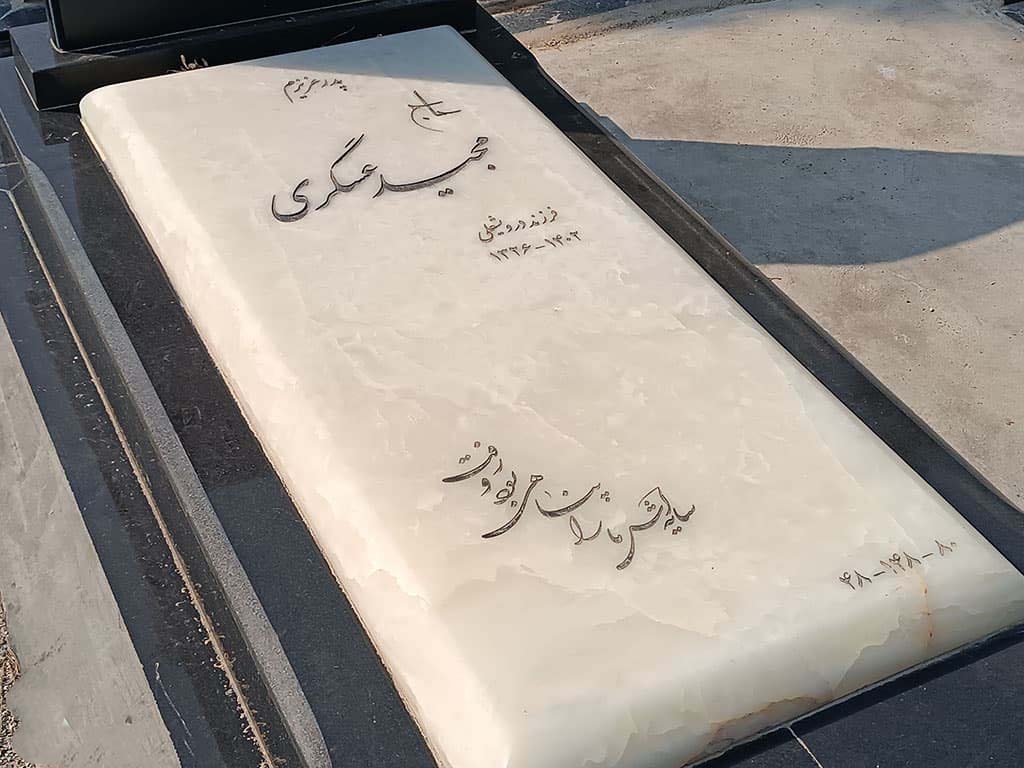 پدر عزیزم
حاج
مجید عسگری
فرزند درویشعلی
۱۳۲۶-۱۴۰۲
سایه‌اش ما را پناهی بود و رفت
۴۸-۱۴۸-۸۰